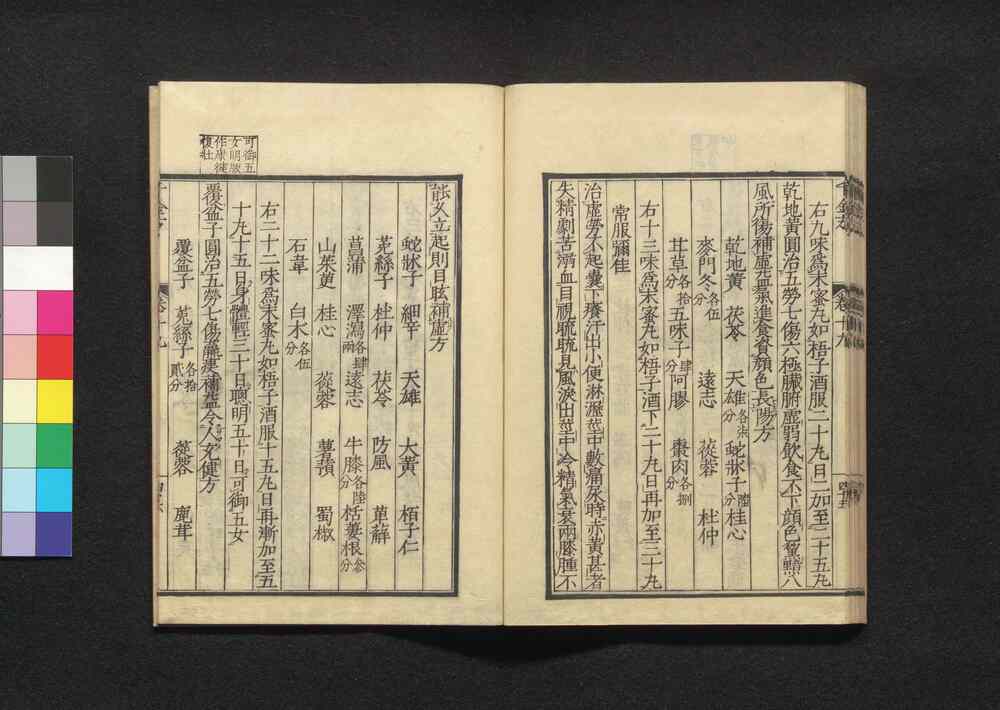 右九味爲末蜜丸如梧子酒服二十丸日二加至二十五丸
乾地黃圓治五勞七傷六極臟腑虛弱飲食不下顔色黧黯八
風所傷補虛益氣進食資顔色長陽方
乾地黃 茯苓 天雄各柒分 蛇牀子陸分 桂心
麥門冬各伍分 遠志 蓯蓉 杜仲
甘草各拾分 五味子肆分 阿膠 棗肉各捌分
右十三味爲末蜜丸如梧子酒下二十丸日再加至三十丸
常服彌佳
治虛勞不起囊下癢汗出小便淋瀝莖中數痛尿時赤黃甚者
失精劇苦溺血目視䀮䀮見風淚出莖中冷精氣衰兩膝腫不
能久立起則目眩補虛方
蛇牀子 細辛 天雄 大黃 栢子仁
菟絲子 杜仲 茯苓 防風 萆薢
菖蒲 澤瀉各肆兩 遠志 牛膝各陸分 栝蔞根叁分
山茱萸 桂心 蓯蓉 薯蕷 蜀椒
石韋 白术各伍分
右二十二味爲末蜜丸如梧子酒服十五丸日再漸加至五
十丸十五日身體輕三十日聰明五十日可御五女
覆盆子圓治五勞七傷羸瘦補益令人充健方
覆盆子 菟絲子各拾貳分 蓯蓉 鹿茸
可御五
女明版